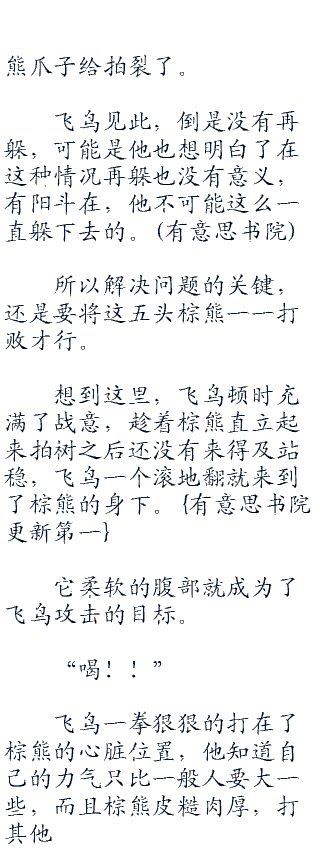 熊爪子给拍裂了。
飞鸟见此，倒是没有再
躲，可能是他也想明白了在
这种情况再躲也没有意义，
有阳斗在，他不可能这么一
直躲下去的。(有意思书院)
所以解决问题的关键，
还是要将这五头棕熊一一打
败才行。
想到这里，飞鸟顿时充
满了战意，趁着棕熊直立起
来拍树之后还没有来得及站
稳，飞鸟一个滚地翻就来到
了棕熊的身下。{有意思书院
更新第一}
它柔软的腹部就成为了
飞鸟攻击的目标。
“喝！！”
飞鸟一拳狠狠的打在了
棕熊的心脏位置，他知道自
己的力气只比一般人要大一
些，而且棕熊皮糙肉厚，打
其他